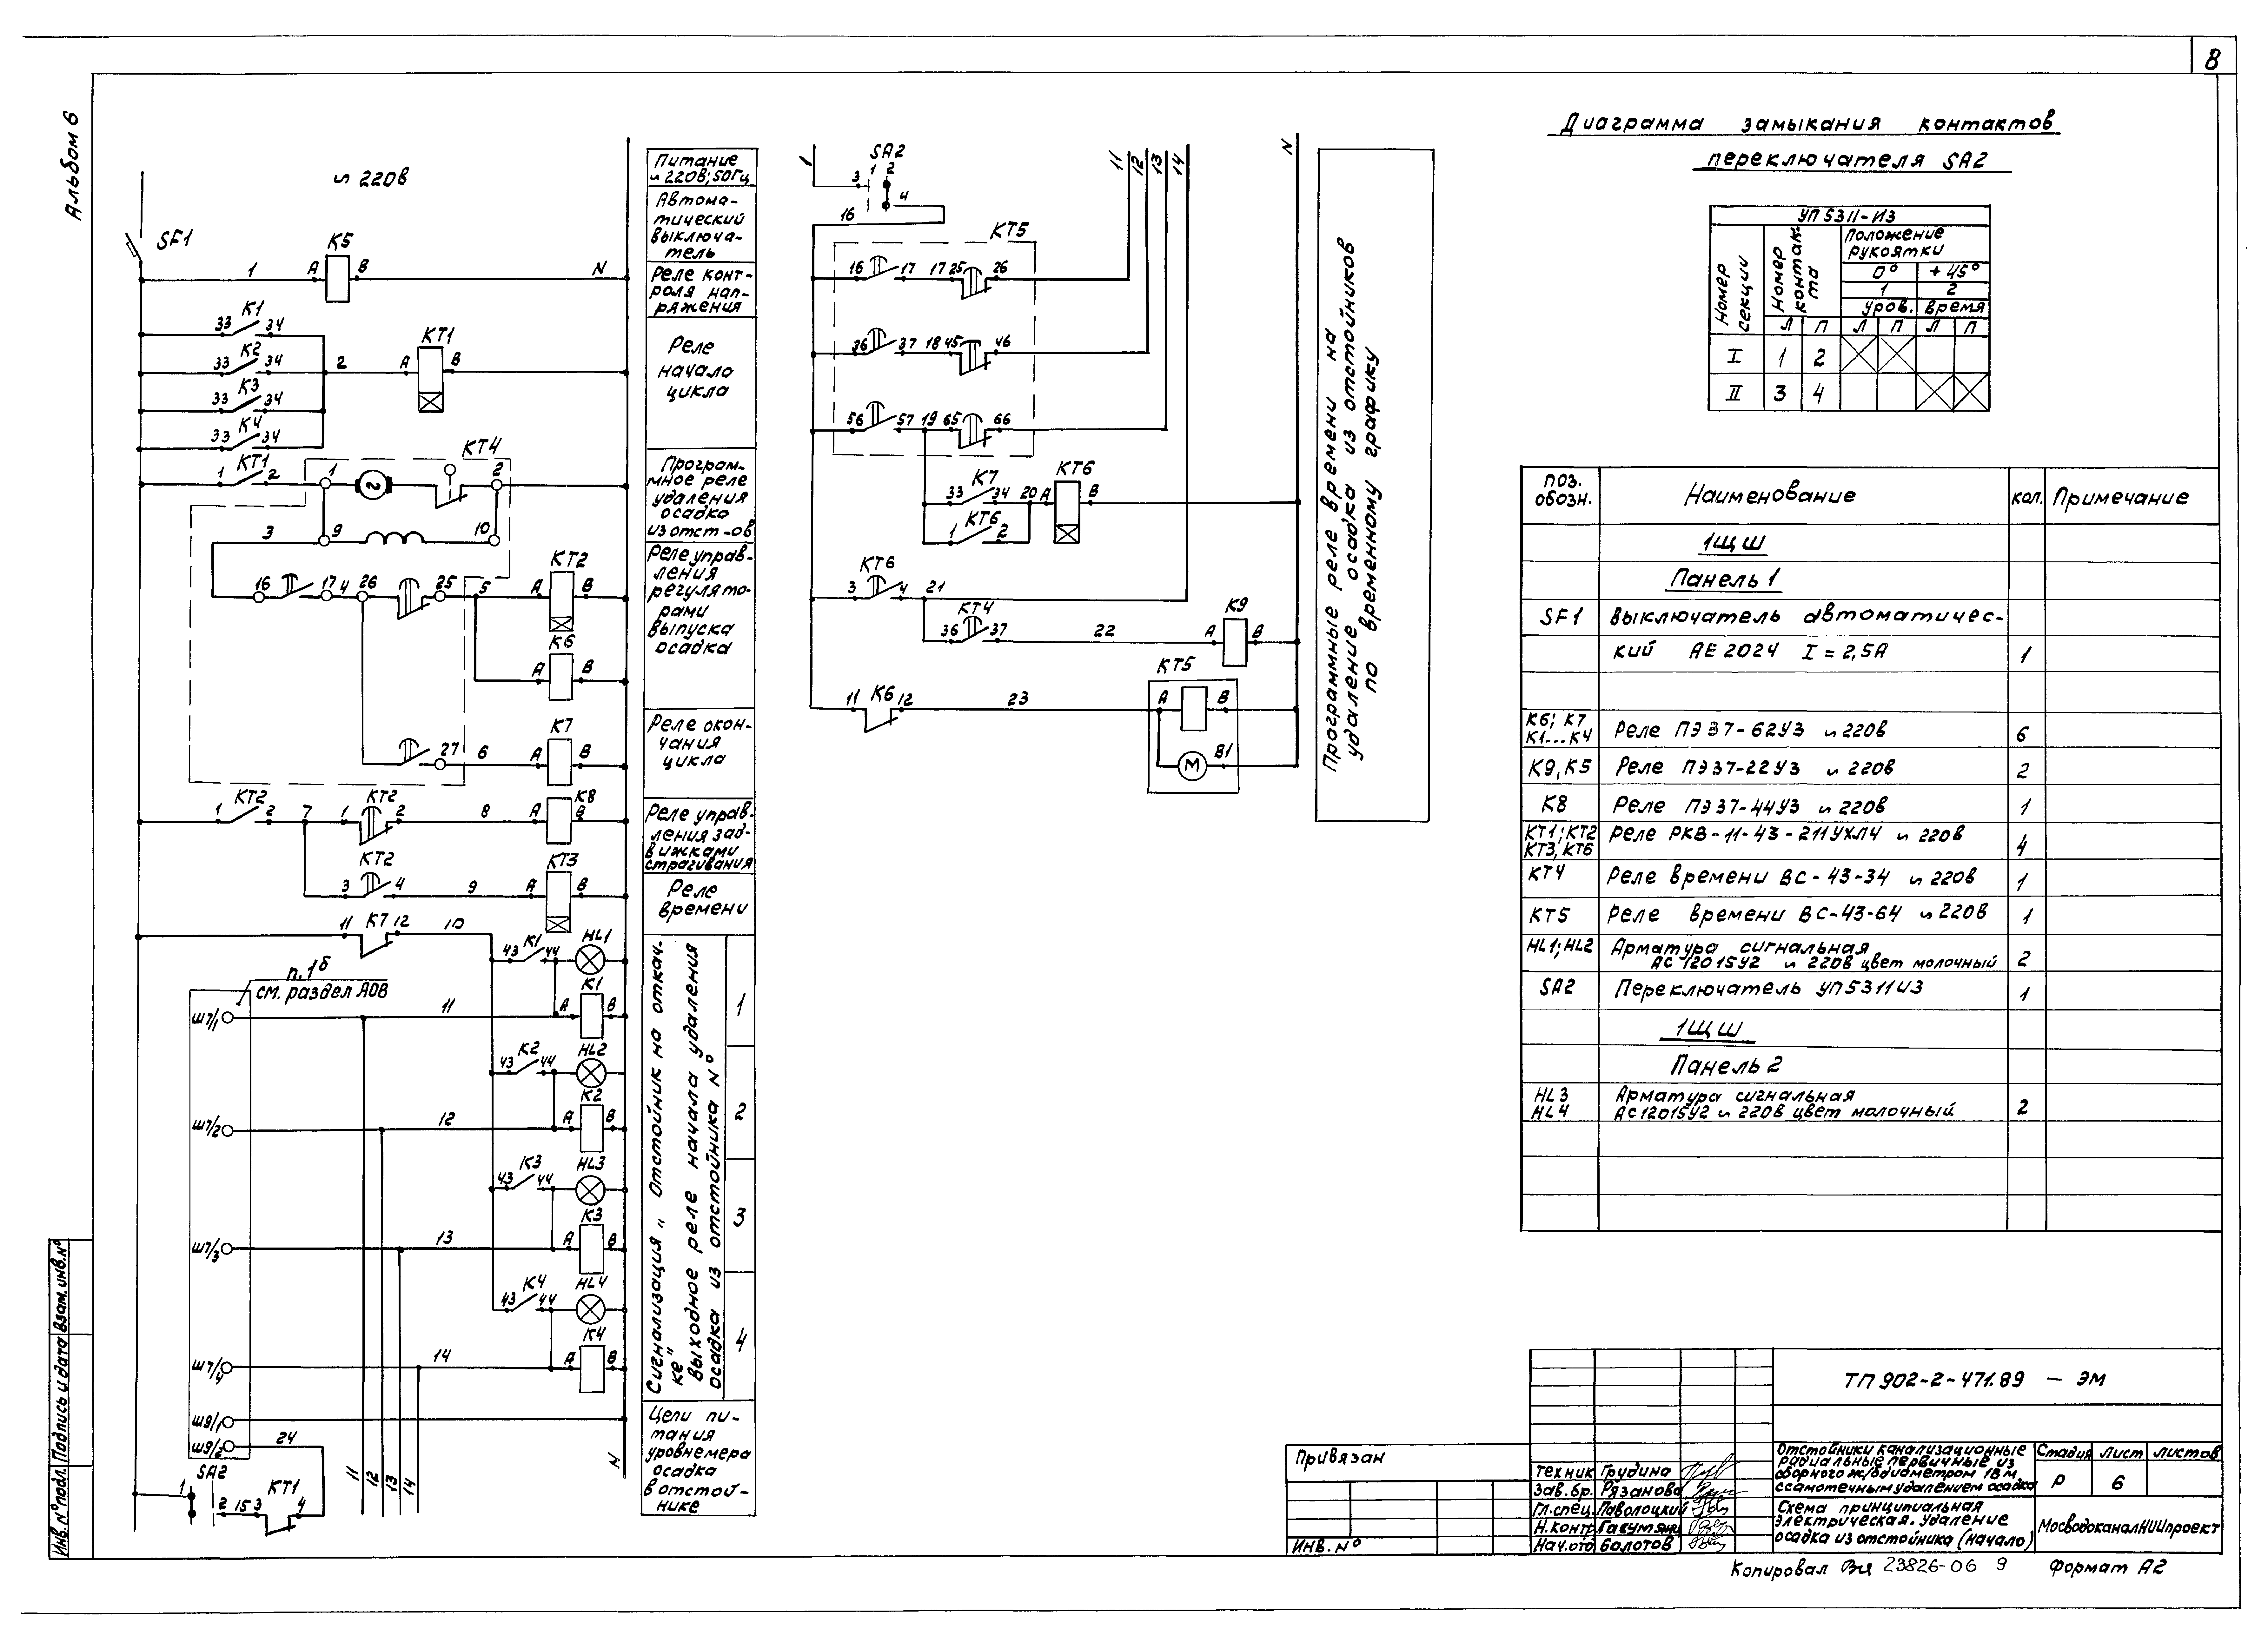 8
Альбом 6
~ 220В
SF1
1 A K5 B N
33 K1 34
33 K2 34 2 A KT1 B
33 K3 34
33 K4 34
1 KT1 2 1 KT4 2
3 9 10
16 17 4 26 25 5 A KT2 B
A K6 B
27 6 A K7 B
1 KT2 2 7 1 KT2 2 8 A K8 B
3 KT2 4 9 A KT3 B
11 K7 12 10
43 K1 44 HL1
п.1б
см. раздел АОВ
Ш7/1 11 A K1 B
43 K2 44 HL2
Ш7/2 12 A K2 B
43 K3 44 HL3
Ш7/3 13 A K3 B
43 K4 44 HL4
Ш7/4 14 A K4 B
Ш9/1
Ш9/2 24
SA2
1 2 15 3 KT1 4
11 12 13 14 N
Питание
~ 220В; 50Гц
Автома-
тический
выключа-
тель
Реле конт-
роля нап-
ряжения
Реле
начала
цикла
Програм-
мное реле
удаления
осадка
из отст-ов
Реле управ-
ления
регулято-
рами
выпуска
осадка
Реле окон-
чания
цикла
Реле управ-
ления зад-
вижками
страгивания
Реле
времени
Сигнализация „ Отстойник на откач-
ке"
Выходное реле начала удаления
осадка из отстойника N°
1
2
3
4
Цепи пи-
тания
уровнемера
осадка
в отстой-
нике
1 SA2 11 12 13 14 N
3 1 2 4
16
KT5
16 17 17 25 26
36 37 18 45 46
56 57 19 65 66
33 K7 34 20 A KT6 B
1 KT6 2
3 KT6 4 21
36 KT4 37 22 A K9 B
11 K6 12 23 KT5 A B
M B1
Программные реле времени на
удаление осадка из отстойников
по временному графику
Диаграмма замыкания контактов
переключателя SA2
УП5311-И3
Номер секции
Номер контак-
та
Положение
рукоятки
0° +45°
1 2
уров. время
Л П Л П Л П
I 1 2
II 3 4
поз.
обозн. Наименование кол. Примечание
1ЩШ
Панель 1
SF1 Выключатель автоматичес-
кий АЕ 2024 I = 2,5А 1
К6; К7
К1...К4 Реле ПЭ37-62У3 ~ 220В 6
К9, К5 Реле ПЭ37-22У3 ~ 220В 2
К8 Реле ПЭ37-44У3 ~ 220В 1
КТ1; КТ2
КТ3, КТ6 Реле РКВ-11-43-211УХЛ4 ~ 220В 4
КТ4 Реле времени ВС-43-34 ~ 220В 1
КТ5 Реле времени ВС-43-64 ~ 220В 1
HL1; HL2 Арматура сигнальная
АС12015У2 ~ 220В цвет молочный 2
SA2 Переключатель УП5311И3 1
1ЩШ
Панель 2
HL3
HL4 Арматура сигнальная
АС12015У2 ~ 220В цвет молочный 2
ТП 902-2-471.89 — ЭМ
Привязан
ИНВ. N°
Техник Грудина
Зав.бр. Рязанова
Гл.спец. Паволоцкий
Н.контр.
Нач.отд Болотов
Отстойники канализационные
радиальные первичные из
сборного ж/б диаметром 18м
с самотечным удалением осадка
Стадия Лист Листов
Р 6
Схема принципиальная
электрическая. Удаление
осадка из отстойника (начало)
МосводоканалНИИпроект
Копировал 23826-06 9 Формат А2
Инв. N° подл. Подпись и дата Взам. инв. N°